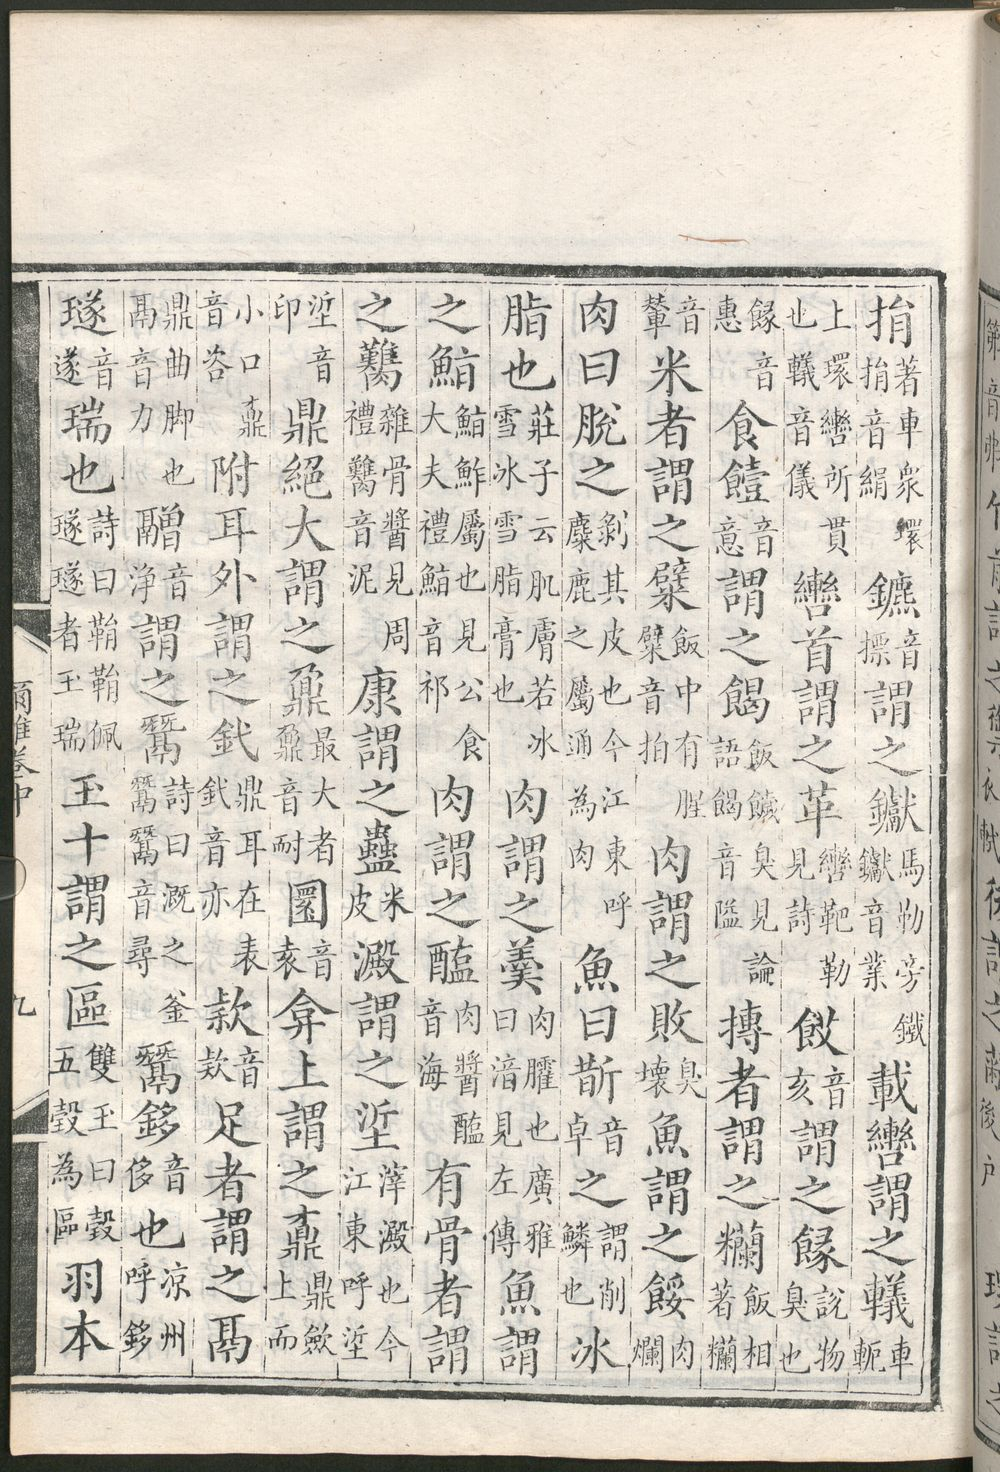 捐著車衆環捐音絹鑣音摽謂之钀馬勒旁鐵钀音業載轡謂之轙車軛
上環轡所貫也轙音儀轡首謂之革轡靶勒見詩餀音亥謂之餯說物臭也
餯音惠食饐音意謂之餲飯饖臭見論語餲音隘摶者謂之糷飯相著糷
音輦米者謂之糪飯中有腥糪音拍肉謂之敗臭壞魚謂之餒肉爛
肉曰脫之剝其皮也今江東呼麋鹿之屬通為肉魚曰斮音卓之謂削鱗也冰
脂也莊子云肌膚若冰雪冰雪脂膏也肉謂之羹肉臛也廣雅曰湆見左傳魚謂
之鮨鮨鮓屬也見公食大夫禮鮨音祁肉謂之醢肉醬醢音海有骨者謂
之臡雜骨醬見周禮臡音泥康謂之蠱米皮澱謂之垽滓澱也今江東呼垽
垽音印鼎絕大謂之鼐最大者鼐音耐圜音袁弇上謂之鼒鼎斂上而
小口鼒音咨附耳外謂之釴鼎耳在表釴音亦款音欵足者謂之鬲
鼎曲脚也鬲音力䰝音净謂之鬵詩曰溉之釜鬵鬵音尋鬵鉹音侈也凉州呼鉹
璲音遂瑞也詩曰鞙鞙佩璲璲者玉瑞玉十謂之區雙玉曰瑴五瑴為區羽本
爾雅卷中
九